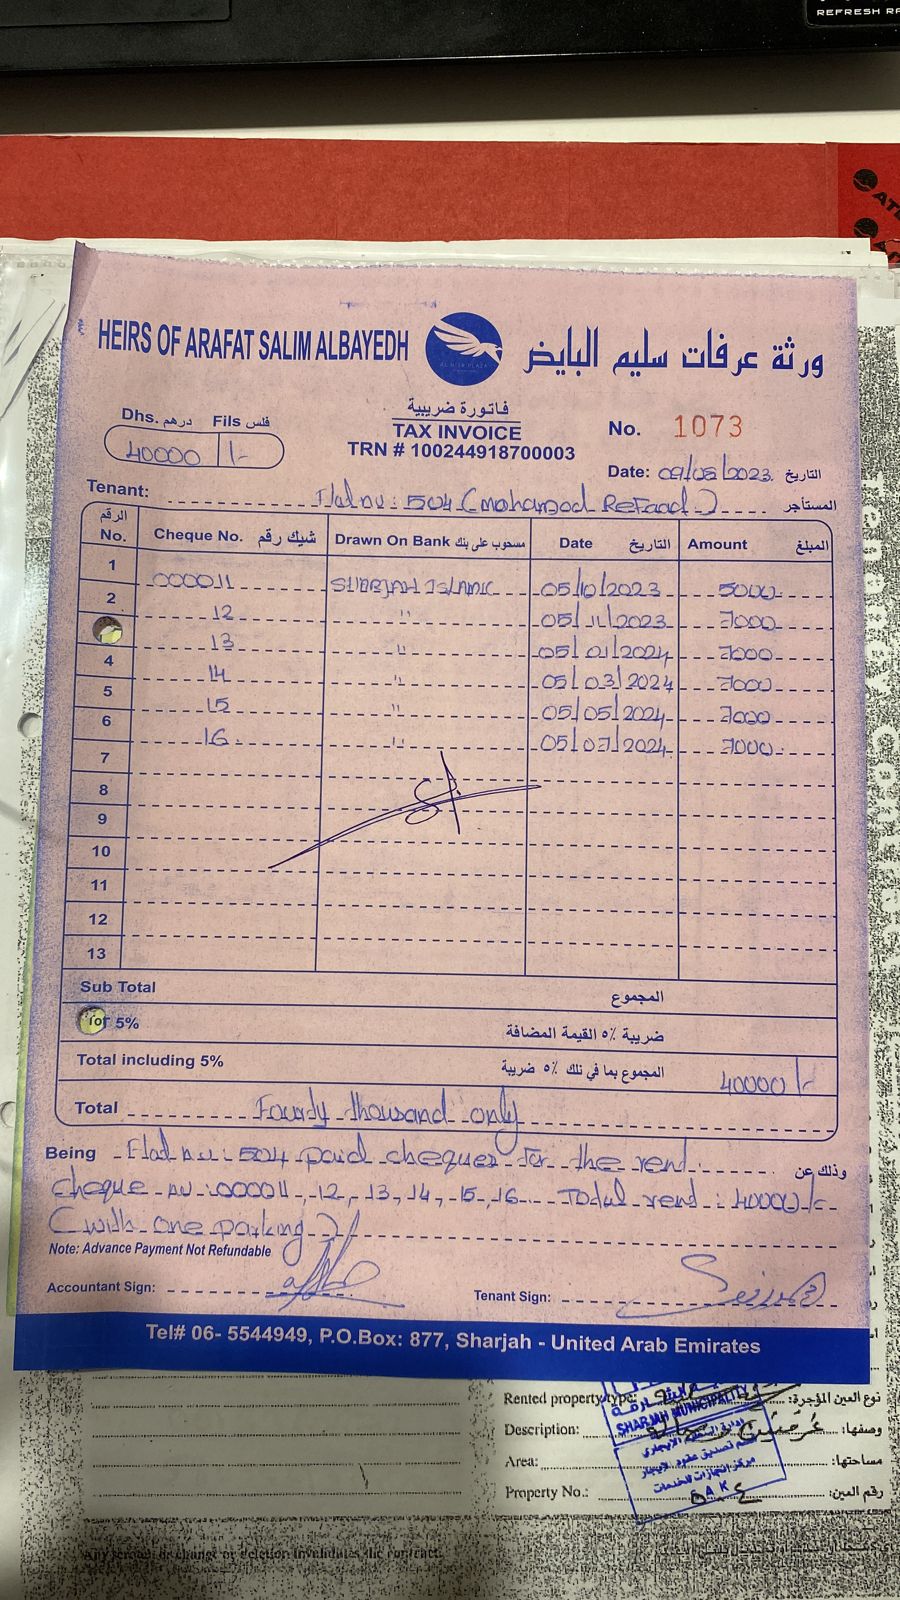 REFRESH RA
HEIRS OF ARAFAT SALIM ALBAYEDH
ورثة عرفات سليم البايض
Dhs. درهم Fils فلس
40000 /-
فاتورة ضريبية
TAX INVOICE
TRN # 100244918700003
No. 1073
Date: 09/08/2023 التاريخ
Tenant: Flat nu : 504 (mohamod ReFaad) المستأجر
الرقم No. Cheque No. شيك رقم Drawn On Bank مسحوب على بنك Date التاريخ Amount المبلغ
1 000011 SHARJAH ISLAMIC 05/10/2023 5000
2 12 " 05/11/2023 7000
13 " 05/01/2024 7000
4 14 " 05/03/2024 7000
5 15 " 05/05/2024 7000
6 16 " 05/07/2024 7000
7
8
9
10
11
12
13
Sub Total المجموع
5% ضريبة ٥٪ القيمة المضافة
Total including 5% المجموع بما في تلك ٥٪ ضريبة 40000/-
Total Fourty thousand only
Being Flat nu : 504 paid cheques for the rent وذلك عن
Cheque nu : 000011, 12, 13, 14, 15, 16 Total rent : 40000/-
(with one parking)
Note: Advance Payment Not Refundable
Accountant Sign: Tenant Sign:
Tel# 06- 5544949, P.O.Box: 877, Sharjah - United Arab Emirates
Rented property type: نوع العين المؤجرة:
SHARJAH MUNICIPALITY
Description: وصفها:
Area: مساحتها:
Property No.: ٥٠٤ رقم العين:
Any scrape or change or deletion invalidates the contract.